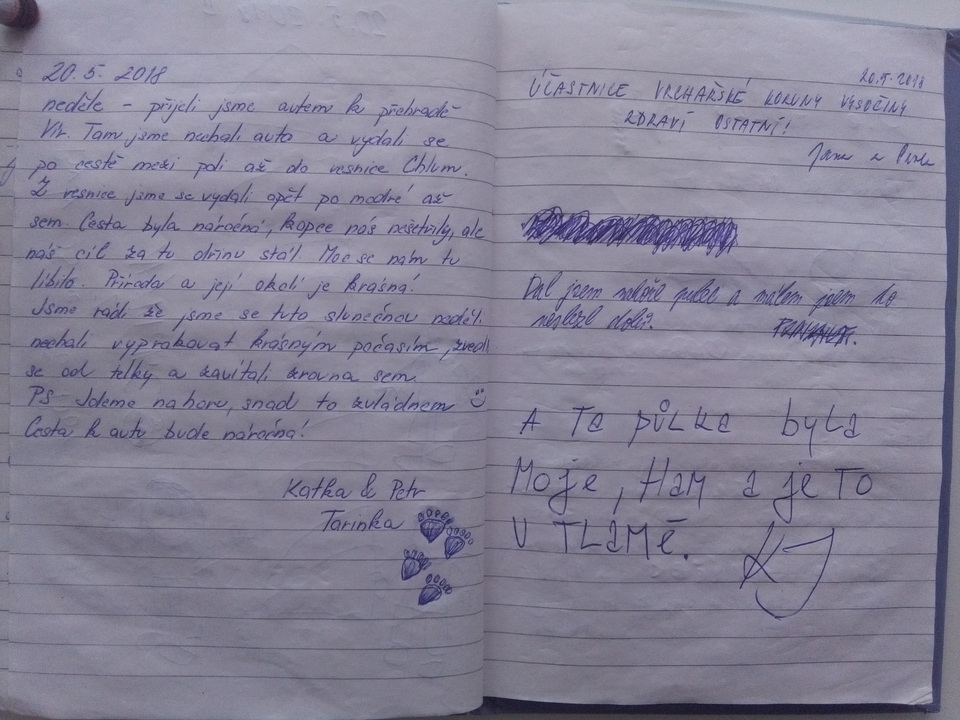 20.5. 2018
neděle - přijeli jsme autem k přehradě
Vír. Tam jsme nechali auto a vydali se
po cestě mezi poli až do vesnice Chlum.
Z vesnice jsme se vydali opět po modré až
sem. Cesta byla náročná, kopce nás nešetřily, ale
náš cíl za tu dřinu stál. Moc se nám tu
líbilo. Příroda a její okolí je krásná!
Jsme rádi že jsme se tuto slunečnou neděli
nechali vyprovokovat krásným počasím, zvedli
se od telky a zavítali zrovna sem.
PS Jdeme nahoru, snad to zvládnem
Cesta k autu bude náročná!
Katka & Petr
Tarinka
20.5.2018
ÚČASTNICE VRCHAŘSKÉ KORUNY VYSOČINY
ZDRAVÍ OSTATNÍ!
Jana a
Dal jsem půlce a málem jsem to
neslezl dolů.
A Ta půLka byla
Moje, Ham a je To
V TLamě.